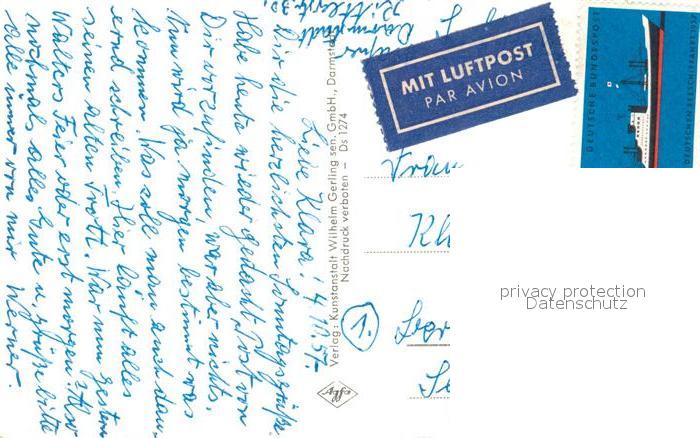 Liebe Klara! 4.10.57.
Dir die herzlichsten Sonntagsgrüße.
Habe heute wieder gedacht Post von
Dir vorzufinden, war aber nichts.
Nun wird ja morgen bestimmt was
kommen. Was soll man auch dau-
ernd schreiben. Hier läuft alles
seinen alten Trott. War nun gestern
Walters Feier oder erst morgen? Also
nochmals alles Gute u. grüße bitte
alle immer von mir Werner.
Verlag: Kunstanstalt Wilhelm Gerling sen. GmbH., Darmstadt
Nachdruck verboten – Ds 1274
Agfa
Darmstadt
MIT LUFTPOST
PAR AVION
DEUTSCHE BUNDESPOST
Frau
Kl
1.
privacy protection
Datenschutz